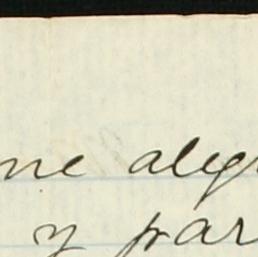 me aleg
y par